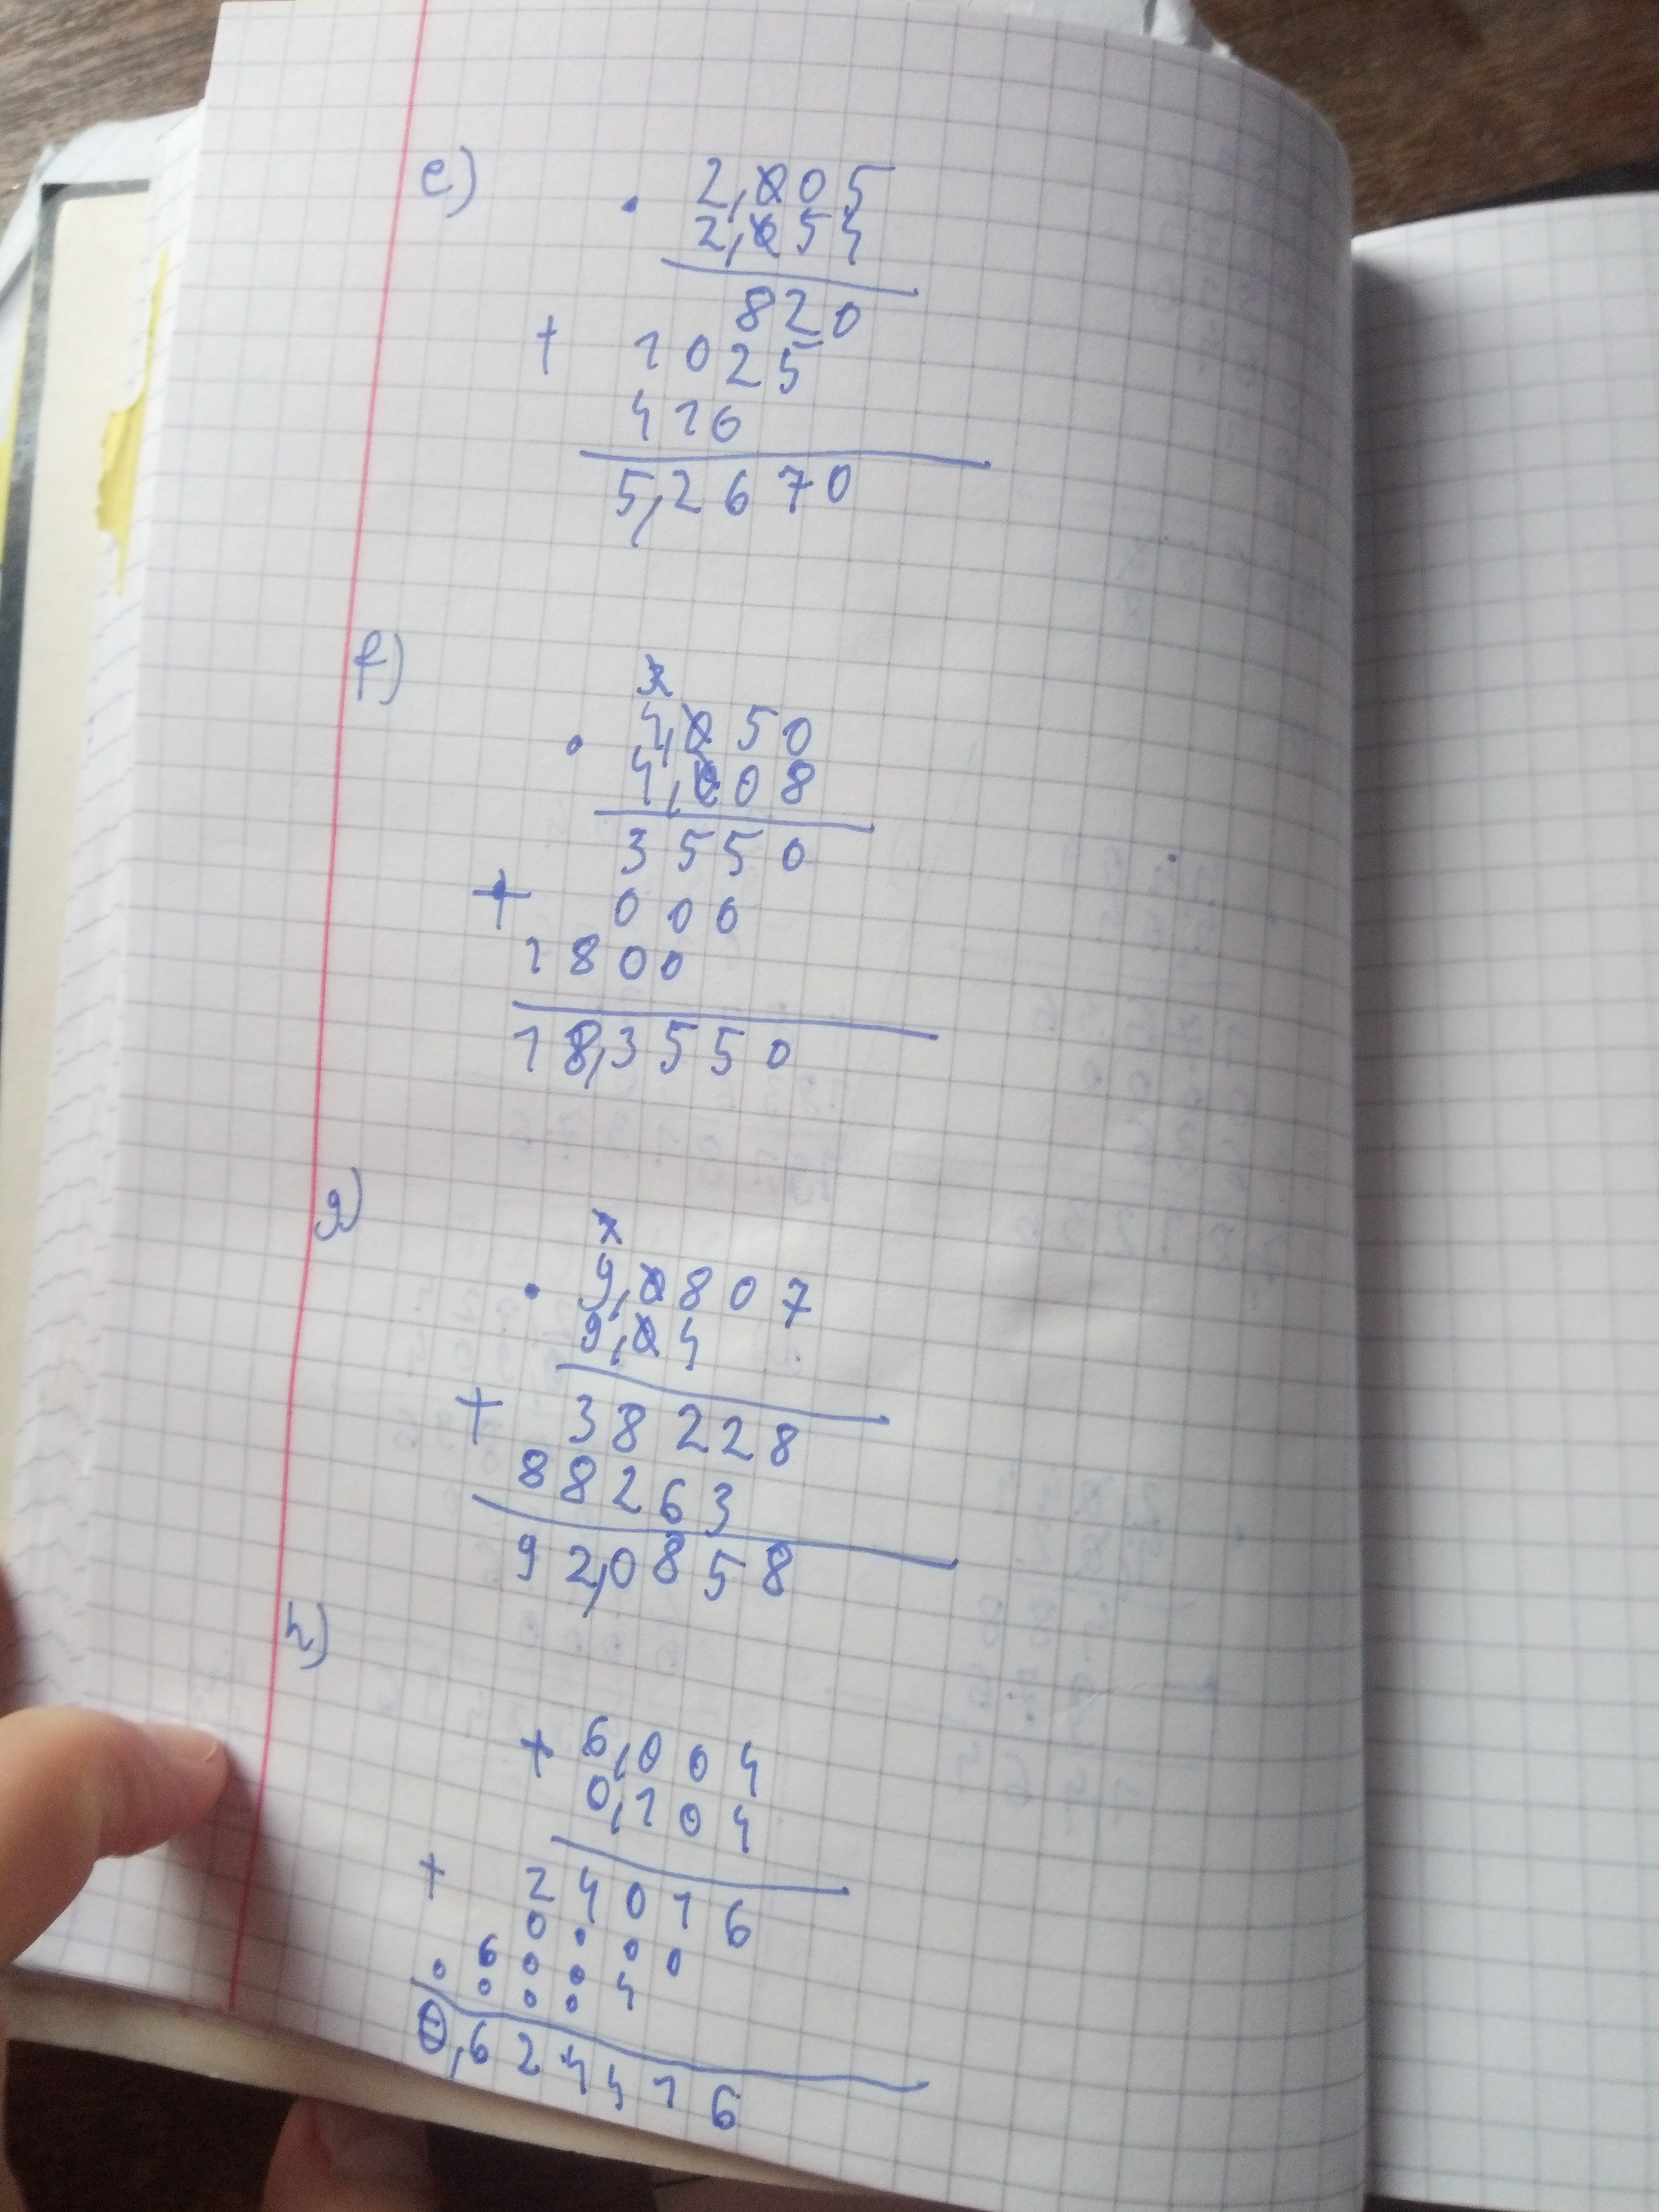 e)
· 2,005
2,054
820
+ 1025
410
5,2670
f)
4,050
· 4,008
3550
+ 000
1800
18,3550
g)
· 9,0807
9,04
+ 38228
88263
92,0858
h)
+ 6,004
0,104
+ 24016
0000
6004
0000
0,624416